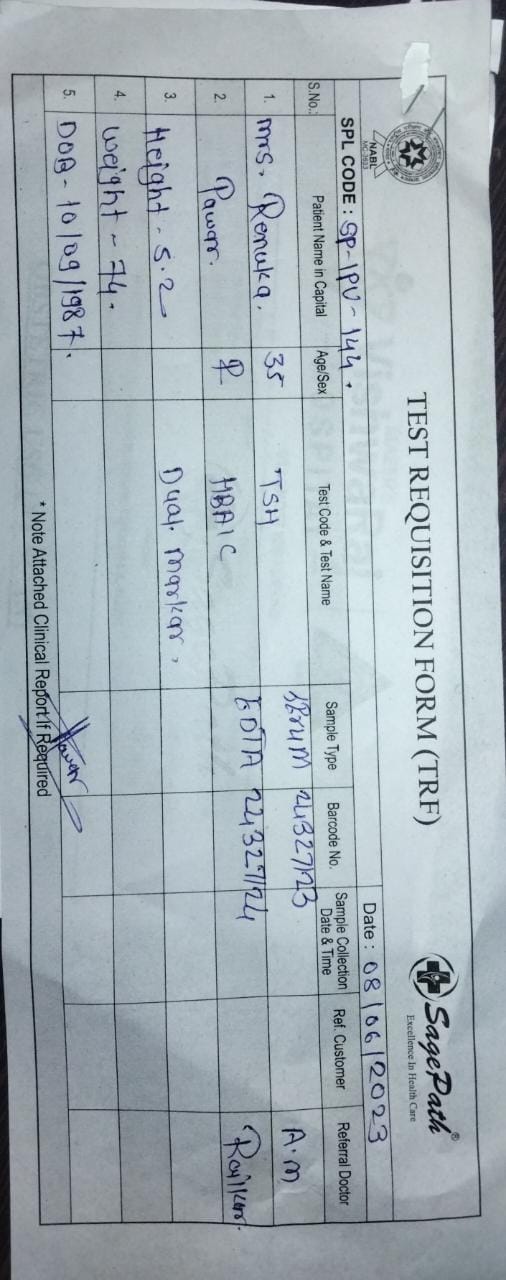 TEST REQUISITION FORM (TRF)
SagePath®
Excellence In Health Care
NABL
SPL CODE : SP-IPV-144.
Date : 08/06/2023
S.No.: Patient Name in Capital Age/Sex Test Code & Test Name Sample Type Barcode No. Sample Collection Date & Time Ref. Customer Referral Doctor
1. Mrs. Renuka. 35 TSH Serum 24327123 A.M
2. Pawar. F HBA1C EDTA 24327124
3. Height - 5.2 Dual Markar.
4. Weight - 74.
5. DOB - 10/09/1987.
Pawar
* Note Attached Clinical Report If Required